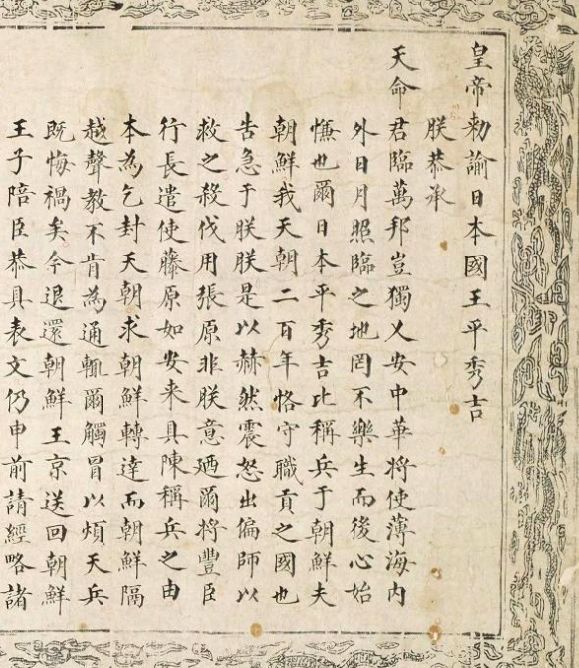 皇帝勅諭日本國王平秀吉
朕恭承
天命君臨萬邦豈獨乂安中華将使薄海内
外日月照臨之地罔不樂生而後心始
慊也爾日本平秀吉比稱兵于朝鮮夫
朝鮮我天朝二百年恪守職貢之國也
告急于朕朕是以赫然震怒出偏師以
救之殺伐用張原非朕意廼爾将豐臣
行長遣使藤原如安来具陳稱兵之由
本為乞封天朝求朝鮮轉達而朝鮮隔
越聲教不肯為通輒爾觸冒以煩天兵
既悔禍矣今退還朝鮮王京送回朝鮮
王子陪臣恭具表文仍申前請經略諸